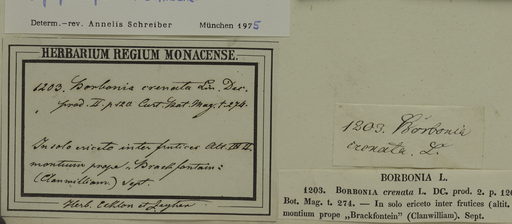 Determ.-rev. Annelis Schreiber München 1975
HERBARIUM REGIUM MONACENSE.
1203. Borbonia crenata Lin. Dec.
prod. II. p 120. Curt. Bot. Mag. t. 274.
In solo ericeto inter frutices Alt. III. II.
montium prope „Brackfontein"
(Clanwilliam.) Sept.
Herb. Ecklon et Zeyher
1203. Borbonia
crenata. L.
BORBONIA L.
1203. BORBONIA crenata L. DC. prod. 2. p. 120
Bot. Mag. t. 274. — In solo ericeto inter frutices (altit.
montium prope „Brackfontein" (Clanwilliam). Sept.